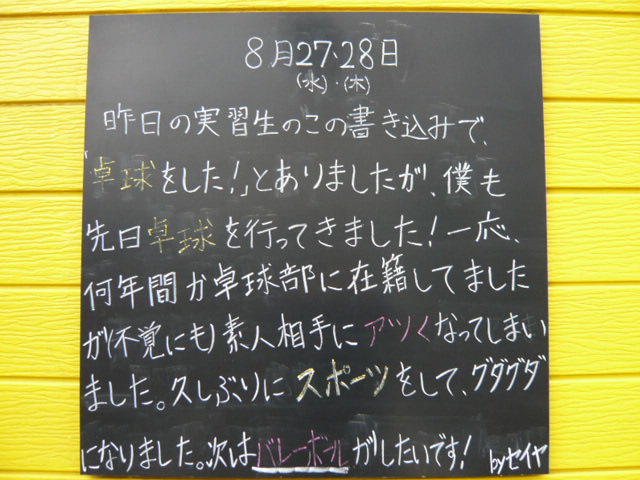 8月27・28日
(水)・(木)
昨日の実習生のこの書き込みで、
「卓球をした!」とありましたが、僕も
先日卓球を行ってきました!一応、
何年間か卓球部に在籍してました
が(不覚にも素人相手にアツくなってしまい
ました。久しぶりにスポーツをして、グダグダ
になりました。次はバレーボールがしたいです!
byセイヤ